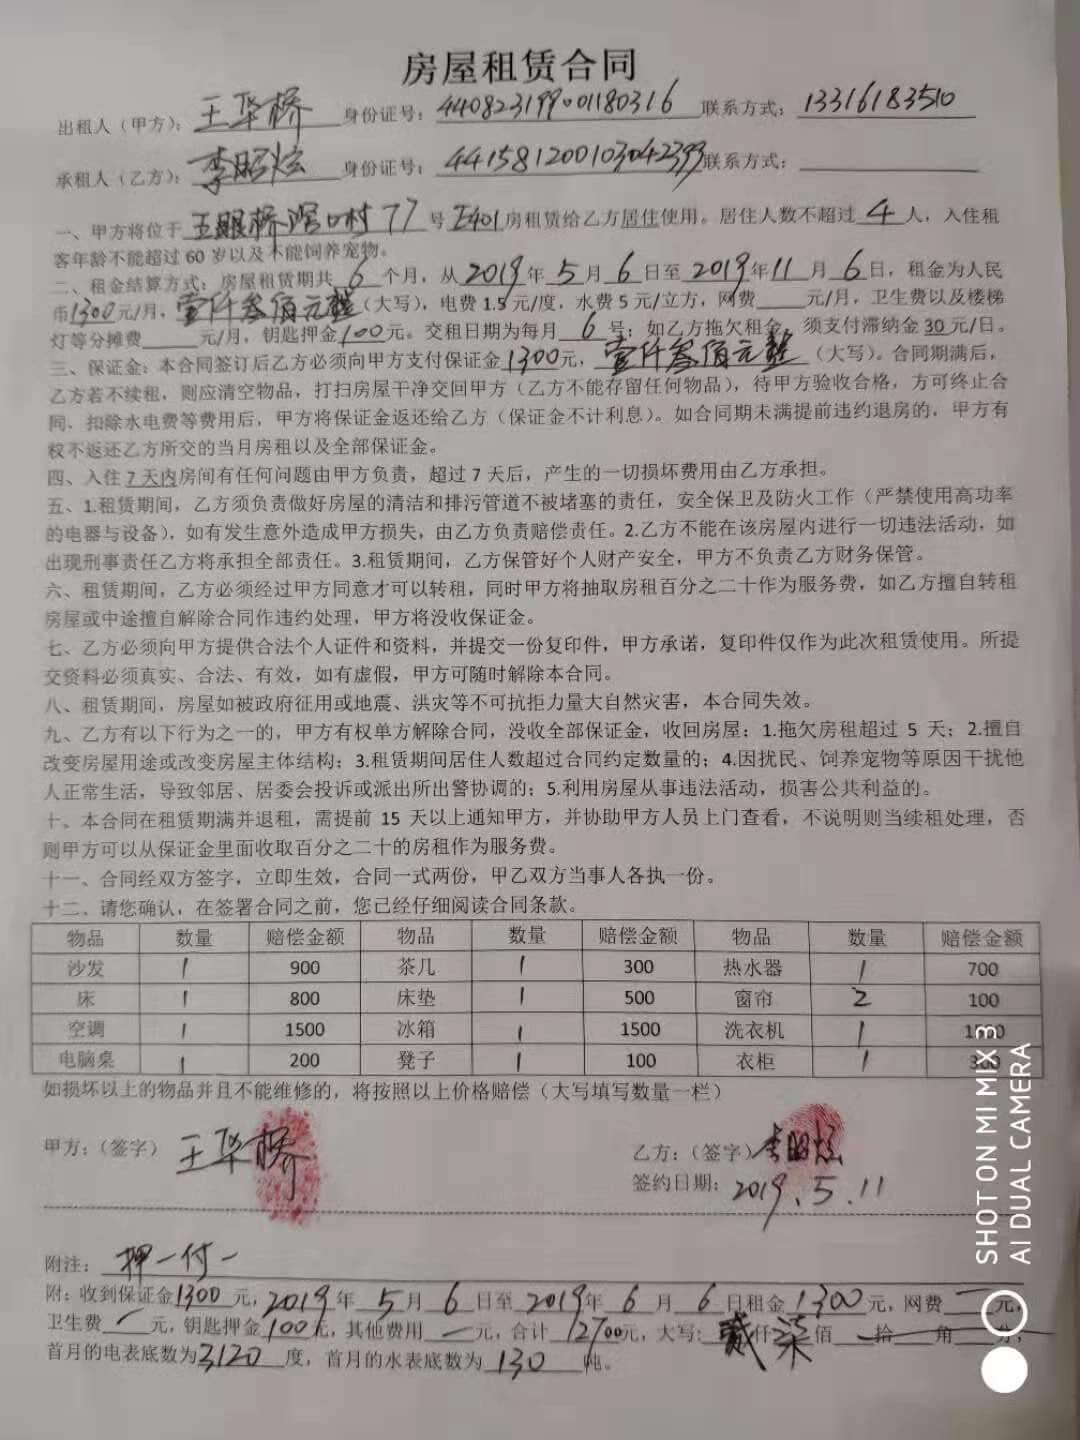 房屋租赁合同
出租人（甲方）：王华桥 身份证号：440823199001180316 联系方式：13316183510
承租人（乙方）：李昭炫 身份证号：441581200103042393 联系方式：
一、甲方将位于 玉眼桥滘口村77 号 E401 房租赁给乙方居住使用。居住人数不超过 4 人，入住租
客年龄不能超过 60 岁以及不能饲养宠物。
二、租金结算方式：房屋租赁期共 6 个月，从 2019 年 5 月 6 日至 2019 年 11 月 6 日，租金为人民
币1300元/月，壹仟叁佰元整（大写），电费 1.5 元/度，水费 5 元/立方，网费____元/月，卫生费以及楼梯
灯等分摊费____元/月，钥匙押金100元。交租日期为每月 6 号；如乙方拖欠租金，须支付滞纳金 30 元/日。
三、保证金：本合同签订后乙方必须向甲方支付保证金1300元，壹仟叁佰元整（大写）。合同期满后，
乙方若不续租，则应清空物品，打扫房屋干净交回甲方（乙方不能存留任何物品），待甲方验收合格，方可终止合
同、扣除水电费等费用后，甲方将保证金返还给乙方（保证金不计利息）。如合同期未满提前违约退房的，甲方有
权不返还乙方所交的当月房租以及全部保证金。
四、入住 7 天内房间有任何问题由甲方负责，超过 7 天后，产生的一切损坏费用由乙方承担。
五、1.租赁期间，乙方须负责做好房屋的清洁和排污管道不被堵塞的责任，安全保卫及防火工作（严禁使用高功率
的电器与设备），如有发生意外造成甲方损失，由乙方负责赔偿责任。2.乙方不能在该房屋内进行一切违法活动，如
出现刑事责任乙方将承担全部责任。3.租赁期间，乙方保管好个人财产安全，甲方不负责乙方财务保管。
六、租赁期间，乙方必须经过甲方同意才可以转租，同时甲方将抽取房租百分之二十作为服务费，如乙方擅自转租
房屋或中途擅自解除合同作违约处理，甲方将没收保证金。
七、乙方必须向甲方提供合法个人证件和资料，并提交一份复印件，甲方承诺，复印件仅作为此次租赁使用。所提
交资料必须真实、合法、有效，如有虚假，甲方可随时解除本合同。
八、租赁期间，房屋如被政府征用或地震、洪灾等不可抗拒力量大自然灾害，本合同失效。
九、乙方有以下行为之一的，甲方有权单方解除合同，没收全部保证金，收回房屋：1.拖欠房租超过 5 天；2.擅自
改变房屋用途或改变房屋主体结构；3.租赁期间居住人数超过合同约定数量的；4.因扰民、饲养宠物等原因干扰他
人正常生活，导致邻居、居委会投诉或派出所出警协调的；5.利用房屋从事违法活动，损害公共利益的。
十、本合同在租赁期满并退租，需提前 15 天以上通知甲方，并协助甲方人员上门查看，不说明则当续租处理，否
则甲方可以从保证金里面收取百分之二十的房租作为服务费。
十一、合同经双方签字，立即生效，合同一式两份，甲乙双方当事人各执一份。
十二、请您确认，在签署合同之前，您已经仔细阅读合同条款。
物品 数量 赔偿金额 物品 数量 赔偿金额 物品 数量 赔偿金额
沙发 1 900 茶几 1 300 热水器 1 700
床 1 800 床垫 1 500 窗帘 2 100
空调 1 1500 冰箱 1 1500 洗衣机 1
电脑桌 1 200 凳子 1 100 衣柜 1 300
如损坏以上的物品并且不能维修的，将按照以上价格赔偿（大写填写数量一栏）
甲方：（签字） 王华桥 乙方：（签字）李昭炫
签约日期：2019.5.11
附注：押一付一
附：收到保证金1300元，2019年 5 月 6 日至 2019年 6 月 6 日租金 1300 元，网费 一 元，
卫生费 一 元，钥匙押金100元，其他费用 一 元，合计 2700元，大写：贰仟柒佰 拾 角 分；
首月的电表底数为3120度，首月的水表底数为 130 吨。
SHOT ON MI MIX 3
AI DUAL CAMERA